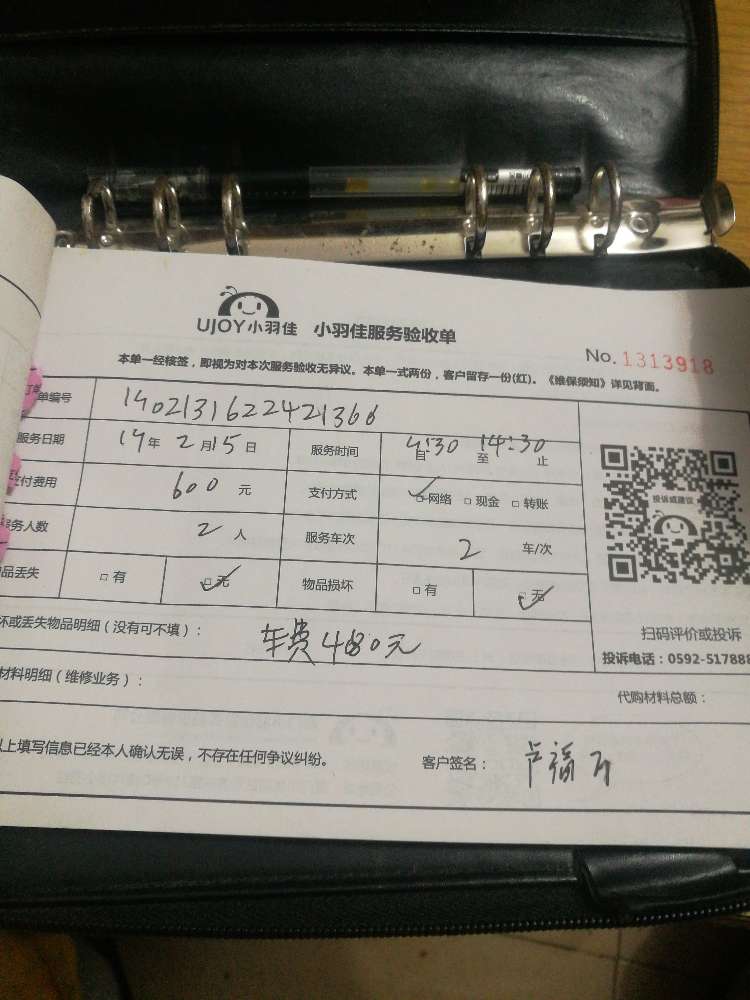 UJOY小羽佳 小羽佳服务验收单
No. 1313918
本单一经核签，即视为对本次服务验收无异议。本单一式两份，客户留存一份(红)。《维保须知》详见背面。
单编号 1902131622421366
服务日期 19年2月15日 服务时间 自 至 14:30 止
付费用 600元 支付方式 网络 现金 转账
务人数 2人 服务车次 2 车/次
品丢失 有 无 物品损坏 有 无
投诉或建议
扫码评价或投诉
投诉电话：0592-517888
坏或丢失物品明细（没有可不填）： 车费480元
材料明细（维修业务）：
代购材料总额：
上填写信息已经本人确认无误，不存在任何争议纠纷。 客户签名： 卢福